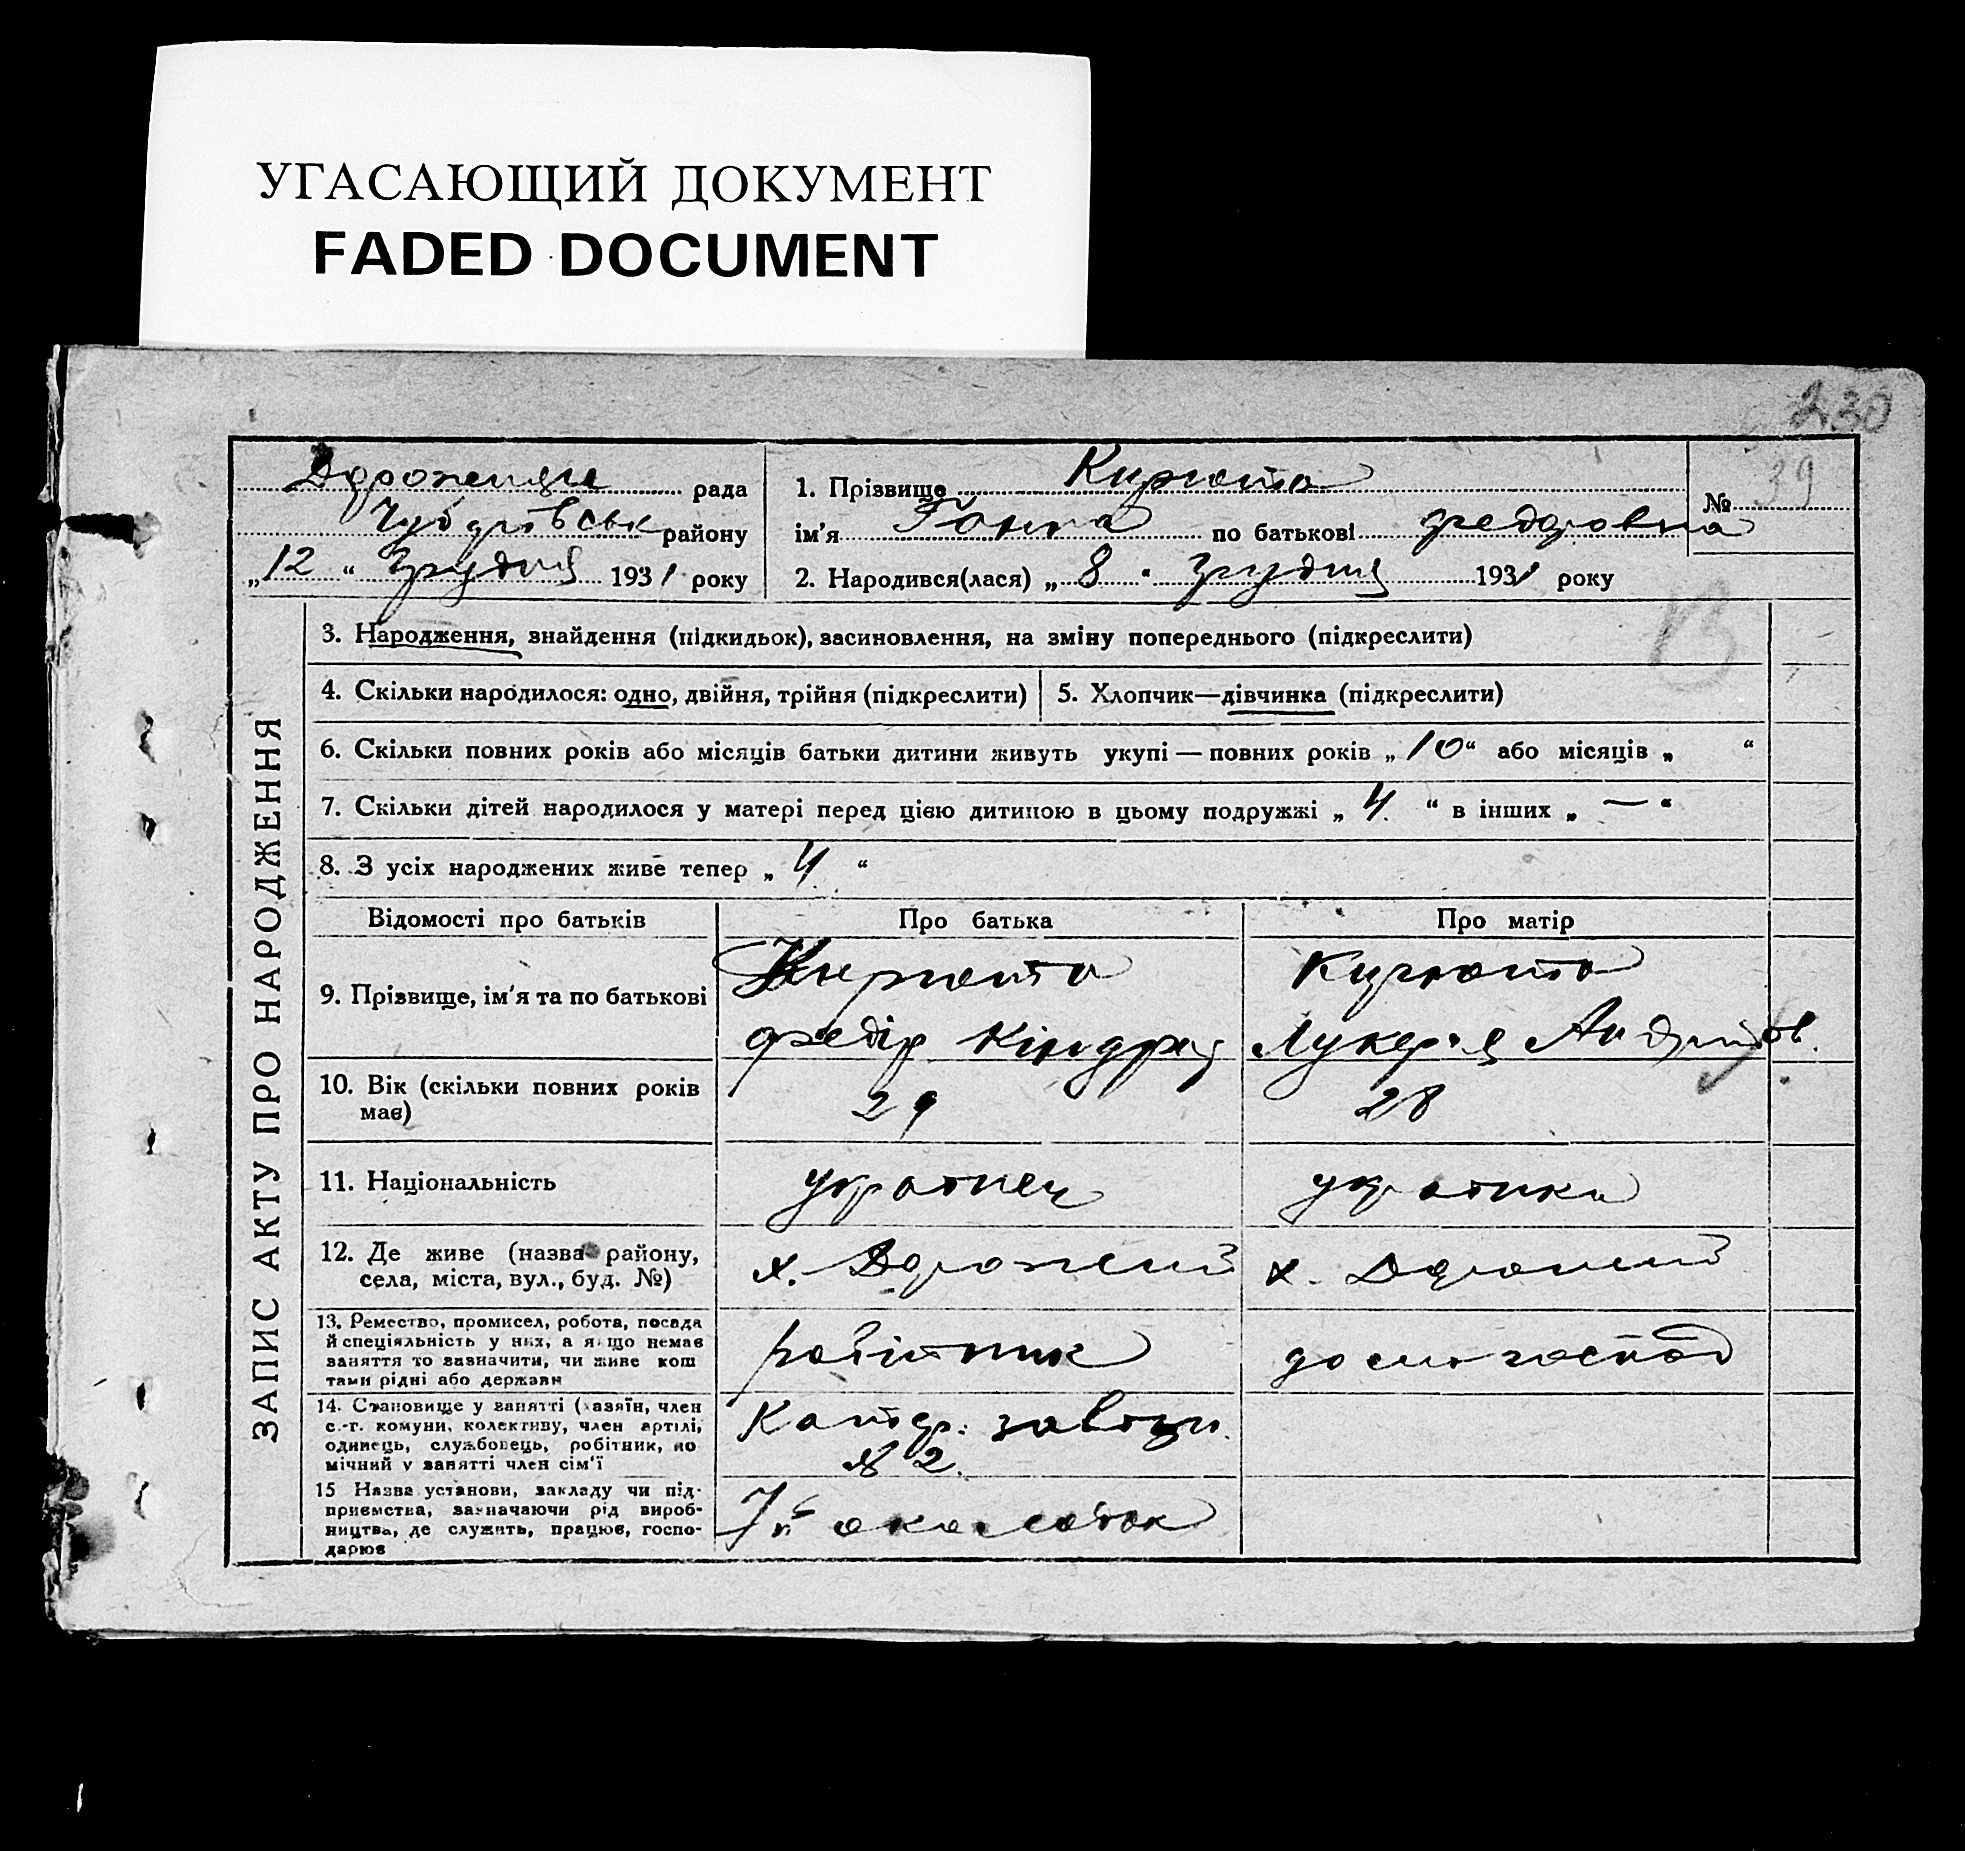 УГАСАЮЩИЙ ДОКУМЕНТ
FADED DOCUMENT
230
рада
району
„12“ Грудня 1931 року
1. Прізвище Кирюта
ім'я Ганна по батькові Федоровна
2. Народився(лася) „8“ Грудня 1931 року
№ 39
ЗАПИС АКТУ ПРО НАРОДЖЕННЯ
3. Народження, знайдення (підкидьок), засиновлення, на зміну попереднього (підкреслити)
4. Скільки народилося: одно, двійня, трійня (підкреслити)
5. Хлопчик—дівчинка (підкреслити)
6. Скільки повних років або місяців батьки дитини живуть укупі — повних років „10“ або місяців „ “
7. Скільки дітей народилося у матері перед цією дитиною в цьому подружжі „4“ в інших „—“
8. З усіх народжених живе тепер „4“
Відомості про батьків
Про батька
Про матір
9. Прізвище, ім'я та по батькові
Кирюта
Федір Кіндрат
Кирюта
Лукерія Андріїов.
10. Вік (скільки повних років
має)
29
28
11. Національність
українец
українка
12. Де живе (назва району,
села, міста, вул., буд. №)
х.
х.
13. Ремество, промисел, робота, посада
й спеціяльність у них, а якщо немає
заняття то зазначити, чи живе кош
тами рідні або держави
робітник
домогоспод
14. Становище у занятті (хазяїн, член
с.-г. комуни, колективу, член артілі,
одинець, службовець, робітник, по
мічний у занятті член сім'ї
№ 2.
15 Назва установи, закладу чи під-
приємства, зазначаючи рід вироб-
ництва, де служить, працює, госпо-
дарює
7й околоток